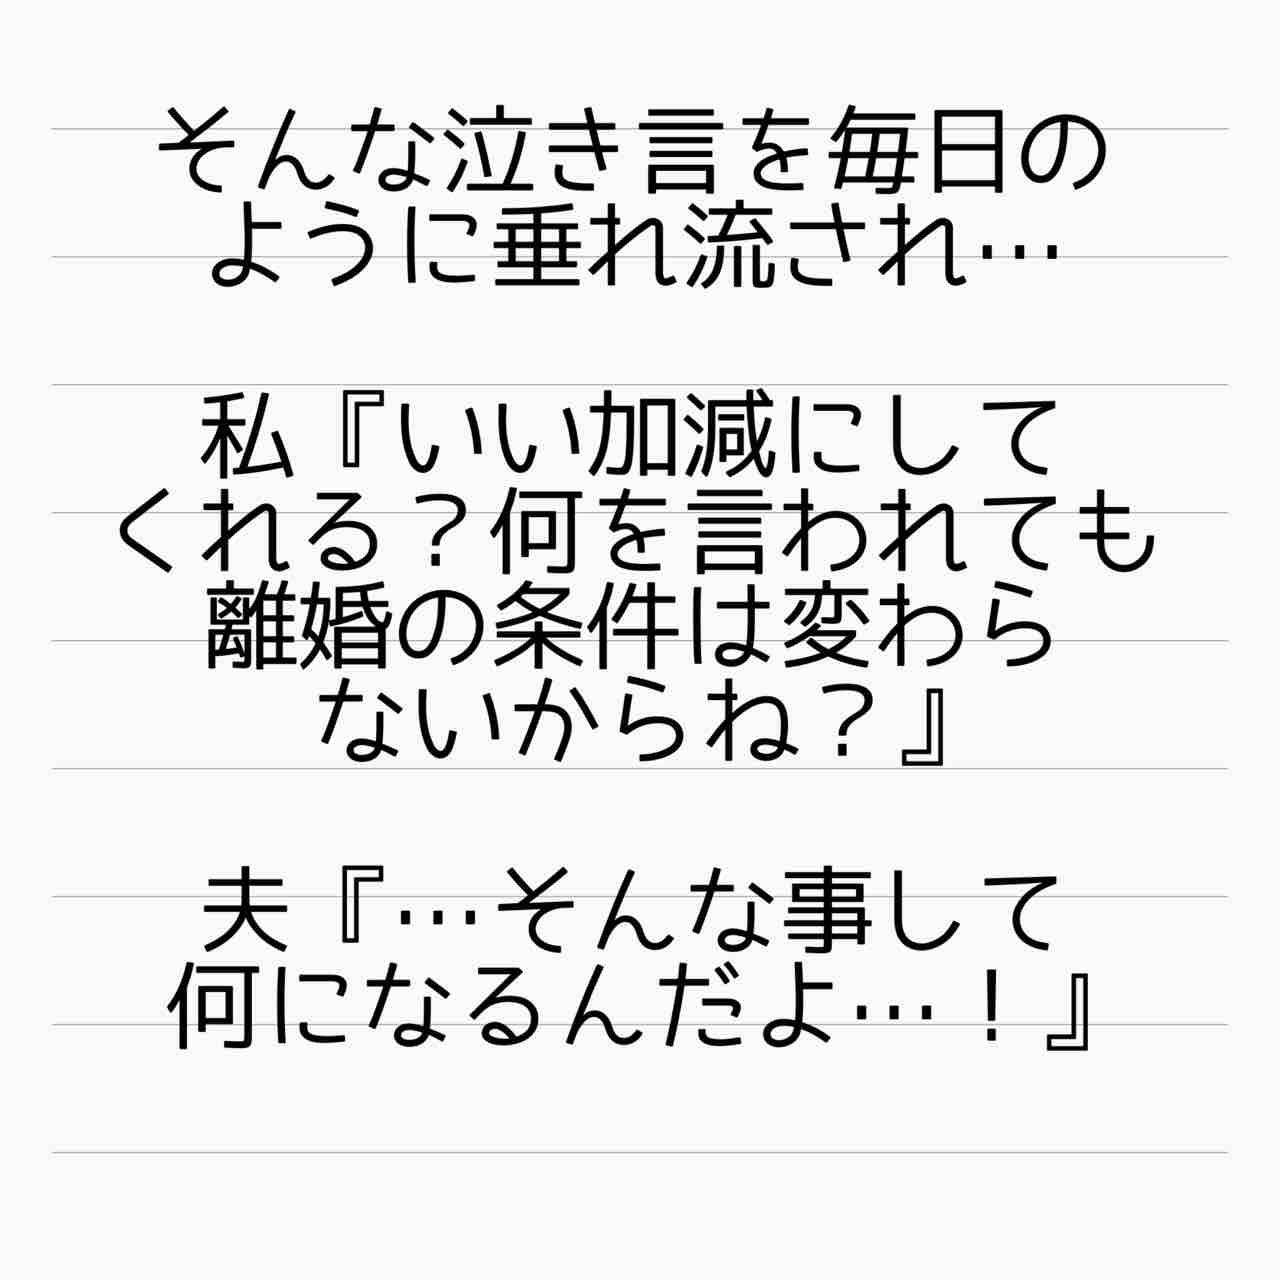 そんな泣き言を毎日の
ように垂れ流され…
私『いい加減にして
くれる？何を言われても
離婚の条件は変わら
ないからね？』
夫『…そんな事して
何になるんだよ…！』